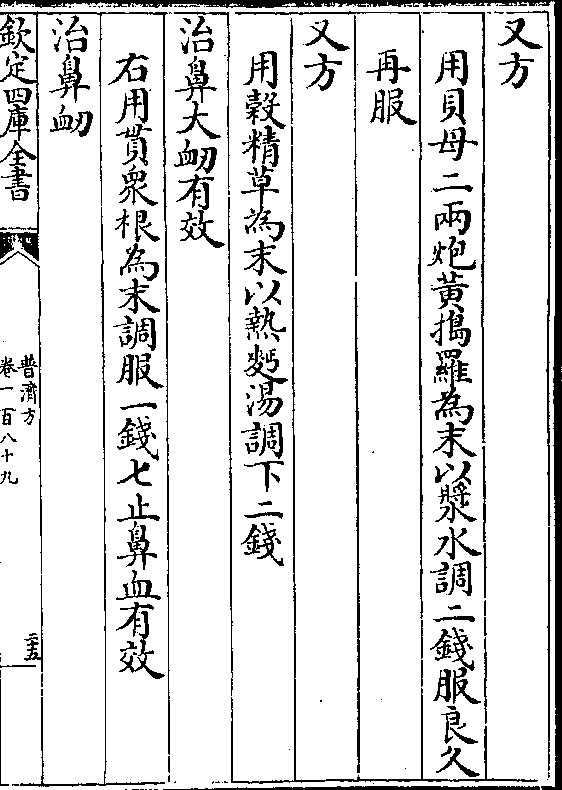 又方
用貝母二兩炮黃搗羅為末以漿水調二錢服良久
再服
又方
用穀精草為末以熱麪湯調下二錢
治鼻大衂有效
右用貫衆根為末調服一錢七止鼻血有效
治鼻衂
欽定四庫全書
普濟方
卷一百八十九
二五